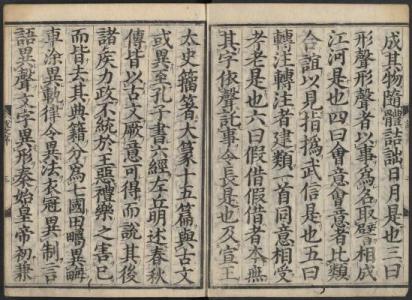 成其物隨體詰詘日月是也三曰
形聲形聲者以事為名取譬相成
江河是也四曰會意會意者比類
合誼以見指撝武信是也五曰
轉注轉注者建類一首同意相受
考老是也六曰假借假借者本無
其字依聲託事令長是也及宣王
太史籀著大篆十五篇與古文
或異至孔子書六經左丘明述春秋
傳皆以古文厥意可得而說其後
諸矦力政不統於王惡禮樂之害已
而皆去其典籍分為七國田疇異畮
車涂異軌律令異法衣冠異制言
語異聲文字異形秦始皇帝初兼